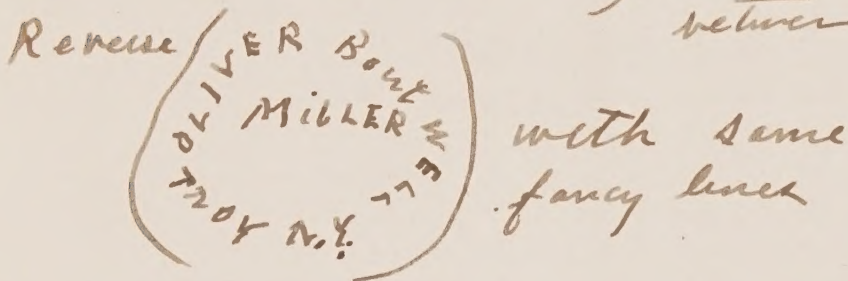 Reverse
OLIVER BOUTWELL
MILLER
TROY N.Y.
with some
fancy lines